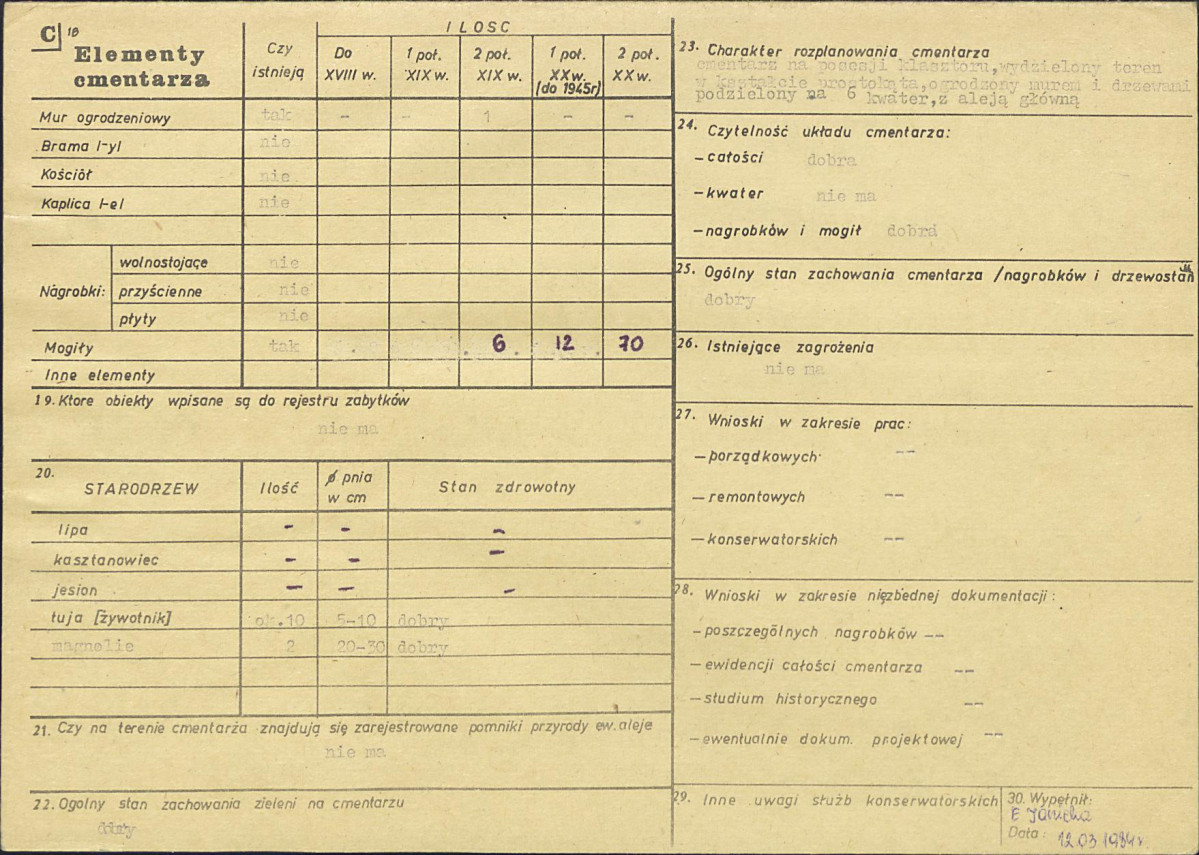 C 18
Elementy
cmentarza
Czy
istnieją
ILOSC
Do
XVIII w.
1 poł.
XIX w.
2 poł.
XIX w.
1 poł.
XX w.
(do 1945r)
2 poł.
XX w.
Mur ogrodzeniowy tak – – 1 – –
Brama l-yl nie
Kościół nie
Kaplica l-el nie
Nagrobki:
wolnostojące nie
przyścienne nie
płyty nie
Mogiły tak 6 12 70
Inne elementy
19. Ktore obiekty wpisane są do rejestru zabytków
nie ma
20.
STARODRZEW
Ilość
ϕ pnia
w cm
Stan zdrowotny
lipa – – –
kasztanowiec – – –
jesion – – –
tuja [żywotnik] ok.10 5-10 dobry
magnolie 2 20-30 dobry
21. Czy na terenie cmentarza znajdują się zarejestrowane pomniki przyrody ew. aleje
nie ma
22. Ogolny stan zachowania zieleni na cmentarzu
dobry
23. Charakter rozplanowania cmentarza
cmentarz na posesji klasztoru, wydzielony teren
w kształcie prostokąta, ogrodzony murem i drzewami
podzielony na 6 kwater, z aleją główną
24. Czytelność układu cmentarza:
– całości dobra
– kwater nie ma
– nagrobków i mogił dobra
25. Ogólny stan zachowania cmentarza /nagrobków i drzewostan
dobry
26. Istniejące zagrożenia
nie ma
27. Wnioski w zakresie prac:
– porządkowych --
– remontowych --
– konserwatorskich --
28. Wnioski w zakresie niezbędnej dokumentacji:
– poszczególnych nagrobków --
– ewidencji całości cmentarza --
– studium historycznego --
– ewentualnie dokum. projektowej --
29. Inne uwagi służb konserwatorskich
30. Wypełnił:
Data: 12.03 1984r